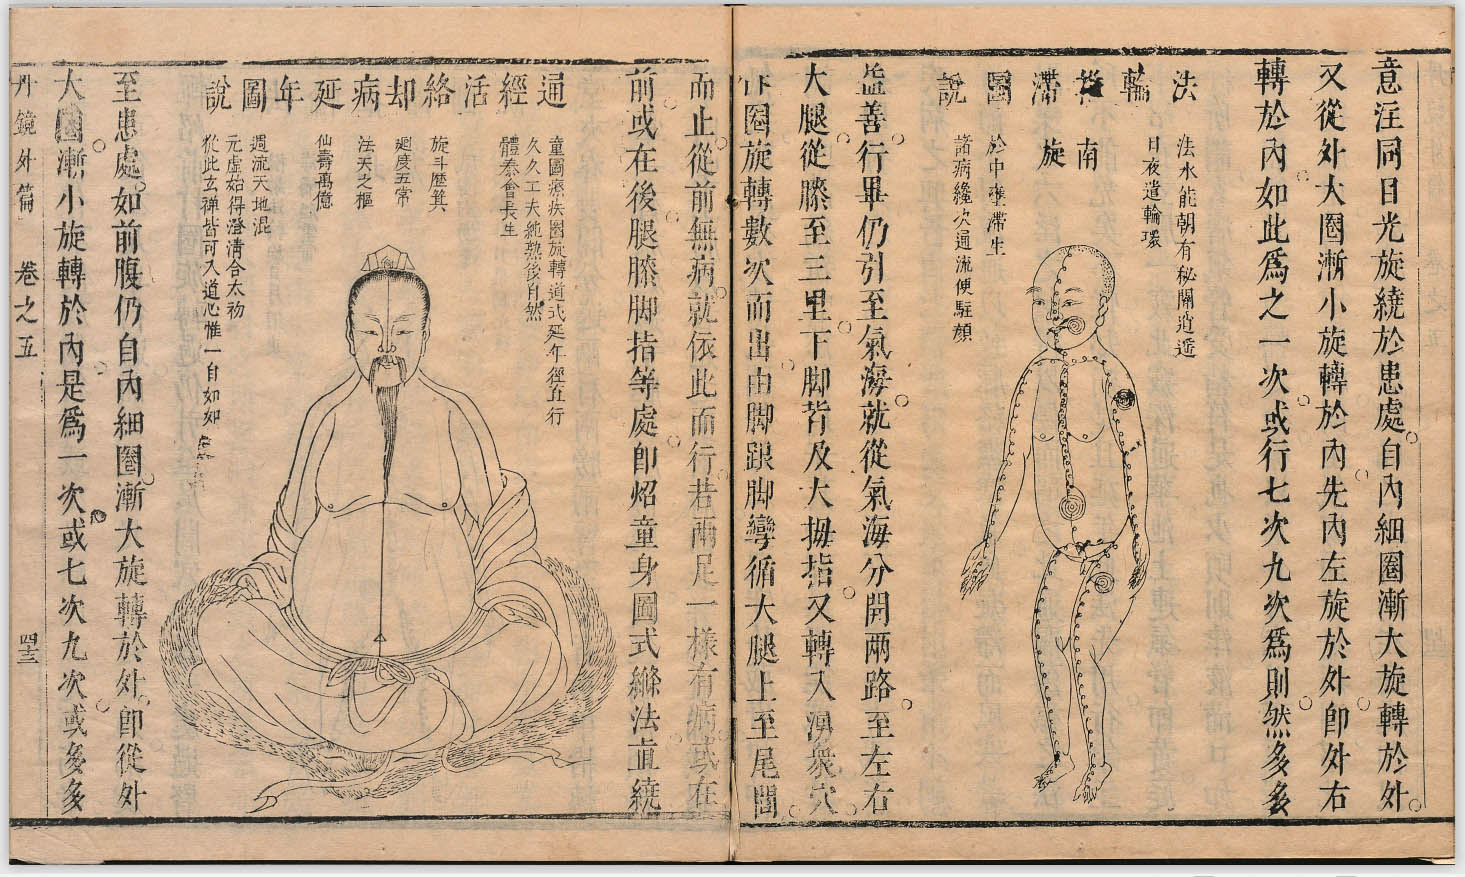 意注同日光旋繞於患處自內細圈漸大旋轉於外
又從外大圈漸小旋轉於內先內左旋於外即外右
轉於內如此爲之一次或行七次九次爲則然多多
法輪
滯圖說
南旋
法水能朝有秘關逍遙
日夜遣輪環
於中壅滯生
諸病纔次通流便駐顏
益善行畢仍引至氣海就從氣海分開兩路至左右
大腿從膝至三里下脚背及大拇指又轉入湧泉穴
旋轉數次而出由脚跟脚彎循大腿上至尾閭
而止從前無病就依此而行若兩足一樣有病或在
前或在後腿膝脚指等處即炤童身圖式縧法直繞
通經活絡却病延年圖說
童圖療疾圈旋轉道式延年徑直行
久久工夫純熟後自然
體泰會長生
旋斗歷箕
廻度五常
法天之樞
仙壽萬億
週流天地混
元虛始得澄清合太初
從此玄禅皆可入道心惟一自如如
至患處如前腹仍自內細圈漸大旋轉於外即從外
大圈漸小旋轉於內是爲一次或七次九次或多多
丹鏡外篇
卷之五